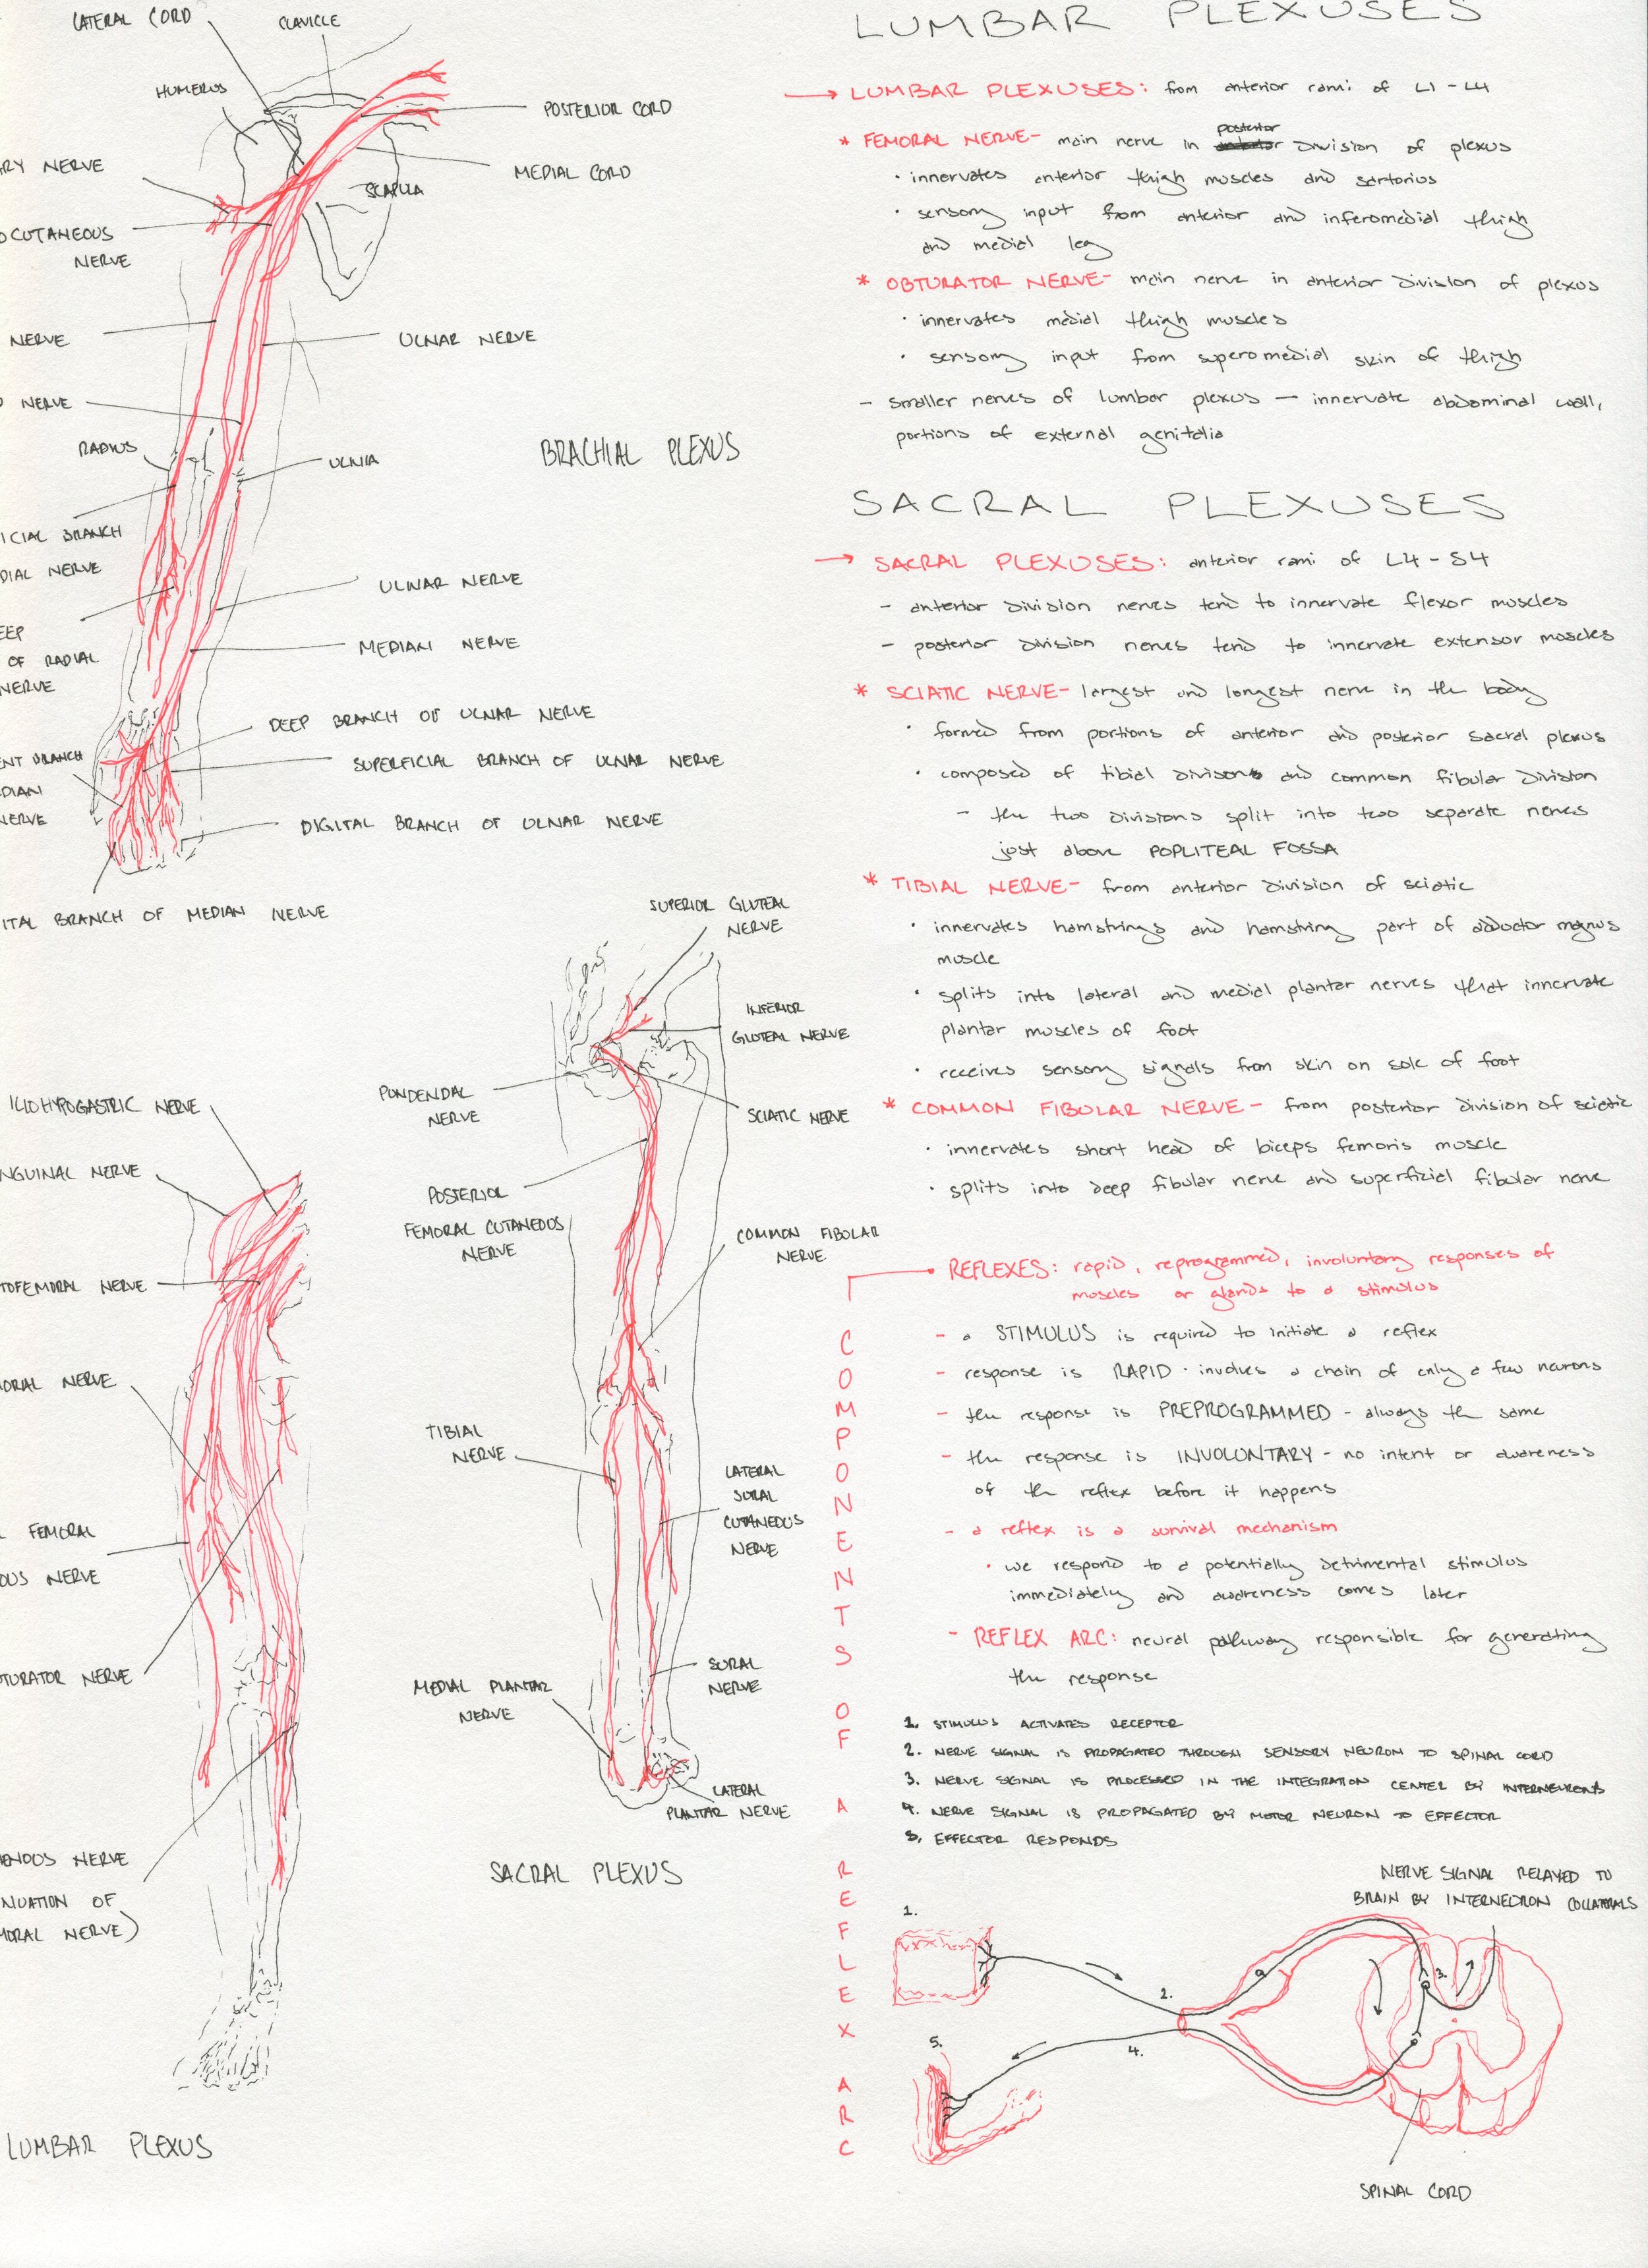 LATERAL CORD
CLAVICLE
HUMERUS
POSTERIOR CORD
RY NERVE
MEDIAL CORD
SCAPULA
OCUTANEOUS
NERVE
NERVE
ULNAR NERVE
NERVE
RADIUS
ULNIA
BRACHIAL PLEXUS
ICIAL BRANCH
DIAL NERVE
ULNAR NERVE
EEP
OF RADIAL
NERVE
MEDIAN NERVE
DEEP BRANCH OF ULNAR NERVE
ENT BRANCH
DIAN
NERVE
SUPERFICIAL BRANCH OF ULNAR NERVE
DIGITAL BRANCH OF ULNAR NERVE
ITAL BRANCH OF MEDIAN NERVE
SUPERIOR GLUTEAL
NERVE
INFERIOR
GLUTEAL NERVE
PUNDENDAL
NERVE
SCIATIC NERVE
POSTERIOR
FEMORAL CUTANEOUS
NERVE
COMMON FIBULAR
NERVE
TIBIAL
NERVE
LATERAL
SURAL
CUTANEOUS
NERVE
SURAL
NERVE
MEDIAL PLANTAR
NERVE
LATERAL
PLANTAR NERVE
SACRAL PLEXUS
ILIOHYPOGASTRIC NERVE
NGUINAL NERVE
TOFEMORAL NERVE
ORAL NERVE
L FEMORAL
OUS NERVE
TURATOR NERVE
HENOUS NERVE
INUATION OF
MORAL NERVE)
LUMBAR PLEXUS
LUMBAR PLEXUSES
→ LUMBAR PLEXUSES: from anterior rami of L1 - L4
* FEMORAL NERVE- main nerve in posterior division of plexus
• innervates anterior thigh muscles and sartorius
• sensory input from anterior and inferomedial thigh
and medial leg
* OBTURATOR NERVE- main nerve in anterior division of plexus
• innervates medial thigh muscles
• sensory input from superomedial skin of thigh
- smaller nerves of lumbar plexus — innervate abdominal wall,
portions of external genitalia
SACRAL PLEXUSES
→ SACRAL PLEXUSES: anterior rami of L4 - S4
- anterior division nerves tend to innervate flexor muscles
- posterior division nerves tend to innervate extensor muscles
* SCIATIC NERVE- largest and longest nerve in the body
• formed from portions of anterior and posterior sacral plexus
• composed of tibial division and common fibular division
- the two divisions split into two separate nerves
just above POPLITEAL FOSSA
* TIBIAL NERVE- from anterior division of sciatic
• innervates hamstrings and hamstring part of adductor magnus
muscle
• splits into lateral and medial plantar nerves that innervate
plantar muscles of foot
• receives sensory signals from skin on sole of foot
* COMMON FIBULAR NERVE- from posterior division of sciatic
• innervates short head of biceps femoris muscle
• splits into deep fibular nerve and superficial fibular nerve
• REFLEXES: rapid, reprogrammed, involuntary responses of
muscles or glands to a stimulus
- a STIMULUS is required to initiate a reflex
- response is RAPID · involves a chain of only a few neurons
- the response is PREPROGRAMMED - always the same
- the response is INVOLUNTARY - no intent or awareness
of the reflex before it happens
- a reflex is a survival mechanism
• we respond to a potentially detrimental stimulus
immediately and awareness comes later
- REFLEX ARC: neural pathway responsible for generating
the response
COMPONENTS OF A REFLEX ARC
1. STIMULUS ACTIVATES RECEPTOR
2. NERVE SIGNAL IS PROPAGATED THROUGH SENSORY NEURON TO SPINAL CORD
3. NERVE SIGNAL IS PROCESSED IN THE INTEGRATION CENTER BY INTERNEURONS
4. NERVE SIGNAL IS PROPAGATED BY MOTOR NEURON TO EFFECTOR
5. EFFECTOR RESPONDS
NERVE SIGNAL RELAYED TO
BRAIN BY INTERNEURON COLLATERALS
1.
2.
3.
4.
5.
SPINAL CORD